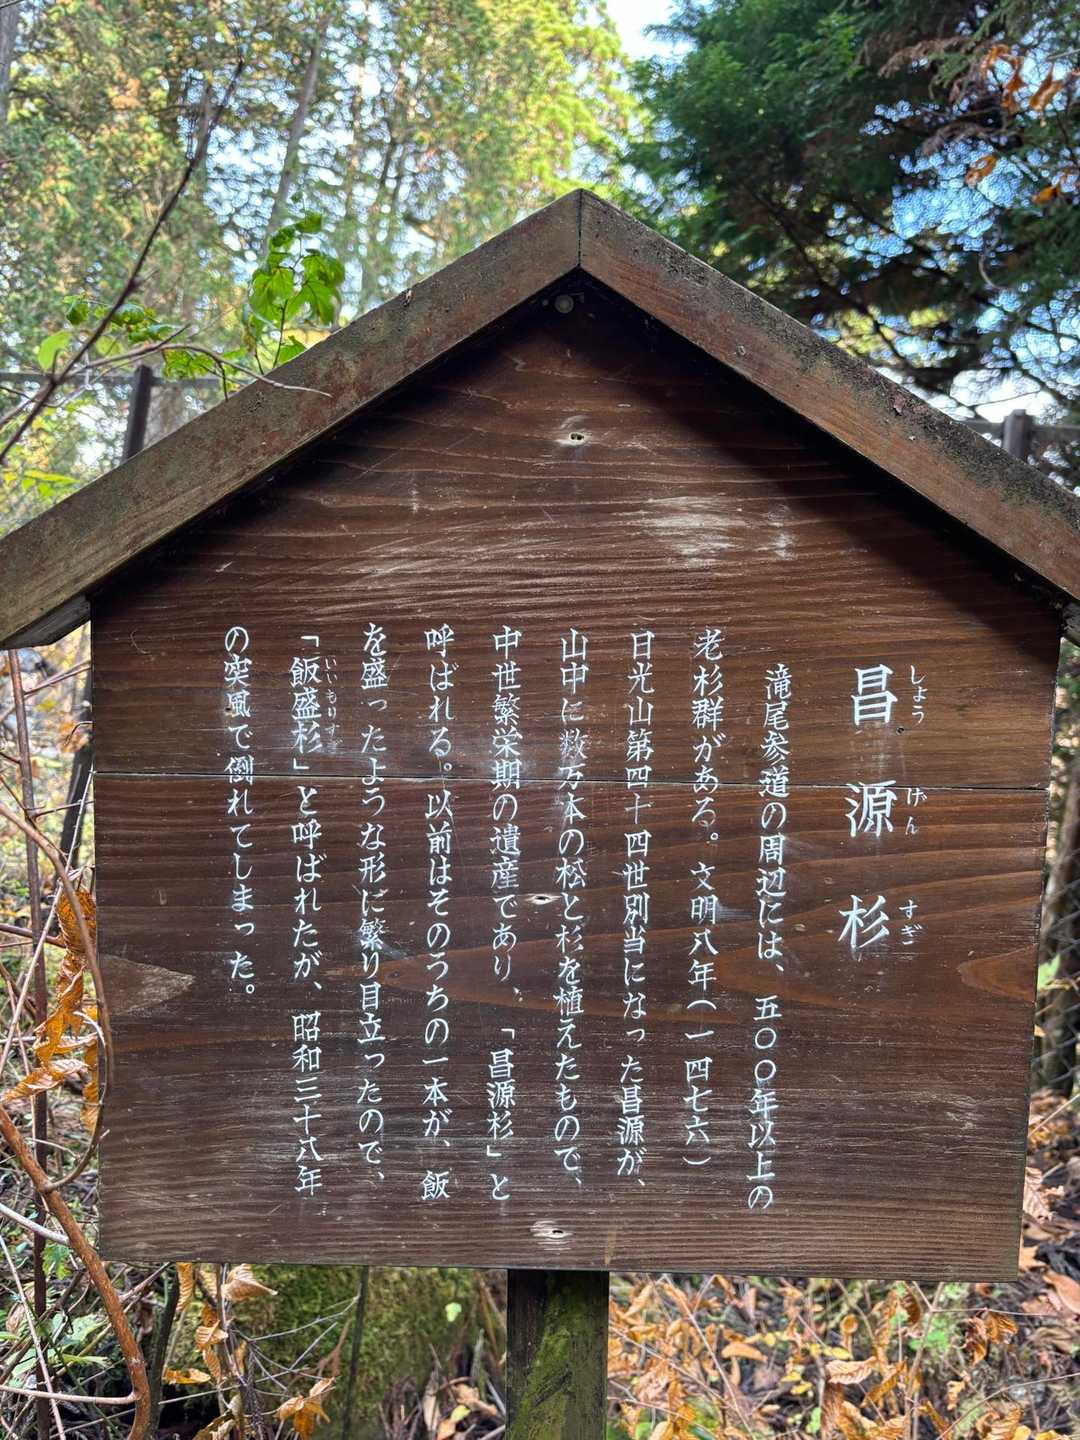 昌源杉
しょうげんすぎ
滝尾参道の周辺には、五〇〇年以上の
老杉群がある。文明八年(一四七六)
日光山第四十四世別当になった昌源が、
山中に数万本の松と杉を植えたもので、
中世繁栄期の遺産であり、「昌源杉」と
呼ばれる。以前はそのうちの一本が、飯
を盛ったような形に繁り目立ったので、
「飯盛杉」と呼ばれたが、昭和三十八年
いいもりすぎ
の突風で倒れてしまった。